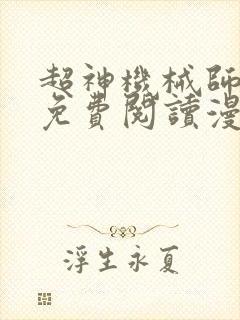 超神機械師
免費閱讀漫
浮生永夏